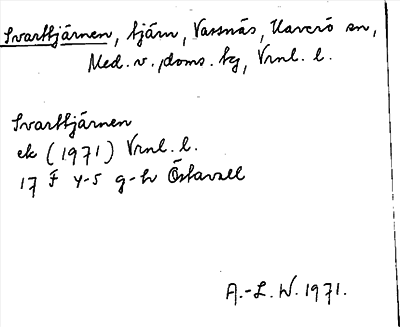 Svarttjärnen, tjärn, Vassnäs, Haverö sn,
Med. v. doms. tg, Vrnl. l.
Svarttjärnen
ek (1971) Vrnl. l.
17 F 4-5 g-h Östavall
A.-L. W. 1971.